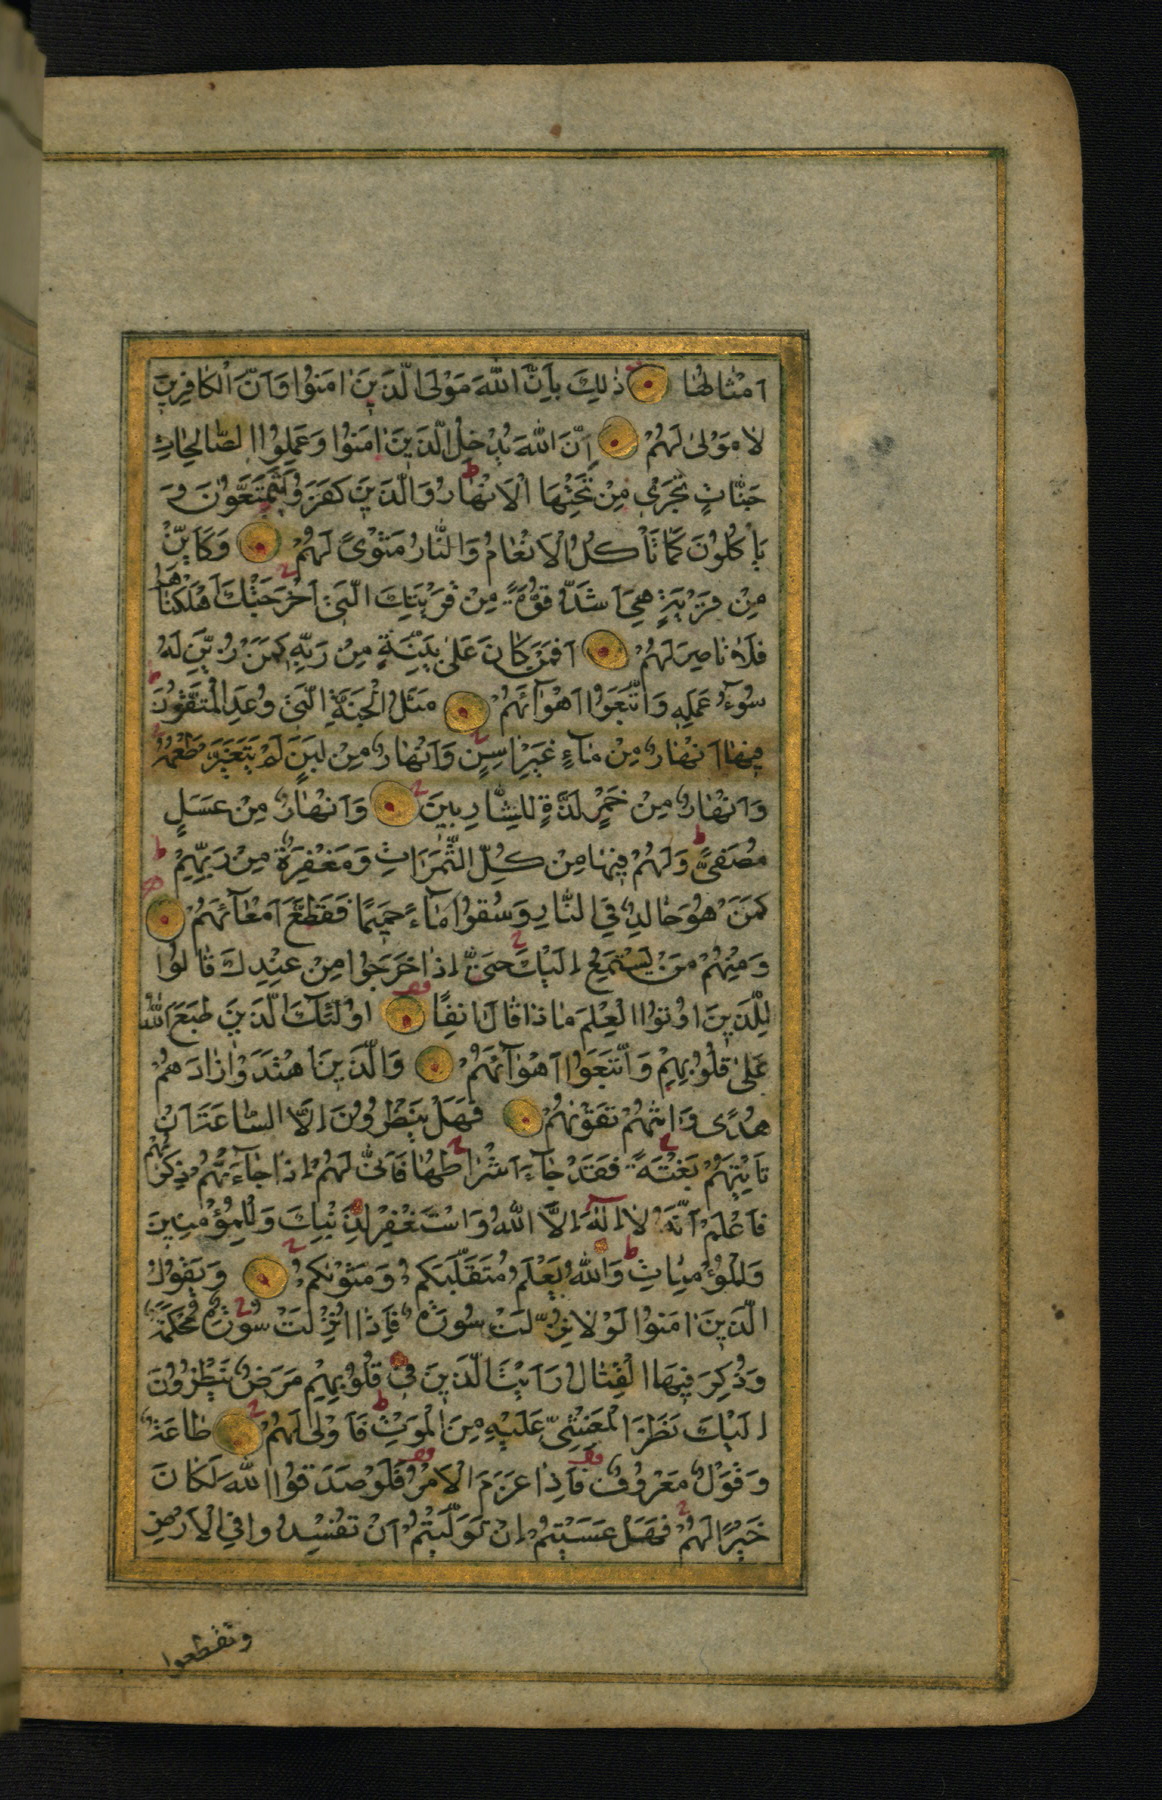 اَمْثَالُهَا ذٰلِكَ بِاَنَّ اللّٰهَ مَوْلَى الَّذِينَ اٰمَنُوا وَاَنَّ الْكَافِرِينَ
لَا مَوْلٰى لَهُمْ اِنَّ اللّٰهَ يُدْخِلُ الَّذِينَ اٰمَنُوا وَعَمِلُوا الصَّالِحَاتِ
جَنَّاتٍ تَجْرِي مِنْ تَحْتِهَا الْاَنْهَارُ وَالَّذِينَ كَفَرُوا يَتَمَتَّعُونَ وَ
يَأْكُلُونَ كَمَا تَأْكُلُ الْاَنْعَامُ وَالنَّارُ مَثْوًى لَهُمْ وَكَاَيِّنْ
مِنْ قَرْيَةٍ هِيَ اَشَدُّ قُوَّةً مِنْ قَرْيَتِكَ الَّتِي اَخْرَجَتْكَ اَهْلَكْنَاهُمْ
فَلَا نَاصِرَ لَهُمْ اَفَمَنْ كَانَ عَلٰى بَيِّنَةٍ مِنْ رَبِّهِ كَمَنْ زُيِّنَ لَهُ
سُوۤءُ عَمَلِهِ وَاتَّبَعُوا اَهْوَاۤئَهُمْ مَثَلُ الْجَنَّةِ الَّتِي وُعِدَ الْمُتَّقُونَ
فِيهَا اَنْهَارٌ مِنْ مَاۤءٍ غَيْرِ اٰسِنٍ وَاَنْهَارٌ مِنْ لَبَنٍ لَمْ يَتَغَيَّرْ طَعْمُهُ
وَاَنْهَارٌ مِنْ خَمْرٍ لَذَّةٍ لِلشَّارِبِينَ وَاَنْهَارٌ مِنْ عَسَلٍ
مُصَفًّى وَلَهُمْ فِيهَا مِنْ كُلِّ الثَّمَرَاتِ وَمَغْفِرَةٌ مِنْ رَبِّهِمْ
كَمَنْ هُوَ خَالِدٌ فِي النَّارِ وَسُقُوا مَاۤءً حَمِيمًا فَقَطَّعَ اَمْعَاۤئَهُمْ
وَمِنْهُمْ مَنْ يَسْتَمِعُ اِلَيْكَ حَتّٰى اِذَا خَرَجُوا مِنْ عِنْدِكَ قَالُوا
لِلَّذِينَ اُوتُوا الْعِلْمَ مَاذَا قَالَ اٰنِفًا اُولٰئِكَ الَّذِينَ طَبَعَ اللّٰهُ
عَلٰى قُلُوبِهِمْ وَاتَّبَعُوا اَهْوَاۤئَهُمْ وَالَّذِينَ اهْتَدَوْا زَادَهُمْ
هُدًى وَاٰتٰيهُمْ تَقْوٰيهُمْ فَهَلْ يَنْظُرُونَ اِلَّا السَّاعَةَ اَنْ
تَأْتِيَهُمْ بَغْتَةً فَقَدْ جَاۤءَ اَشْرَاطُهَا فَاَنّٰى لَهُمْ اِذَا جَاۤءَتْهُمْ ذِكْرٰيهُمْ
فَاعْلَمْ اَنَّهُ لَا اِلٰهَ اِلَّا اللّٰهُ وَاسْتَغْفِرْ لِذَنْبِكَ وَلِلْمُؤْمِنِينَ
وَالْمُؤْمِنَاتِ وَاللّٰهُ يَعْلَمُ مُتَقَلَّبَكُمْ وَمَثْوٰيكُمْ وَيَقُولُ
الَّذِينَ اٰمَنُوا لَوْلَا نُزِّلَتْ سُورَةٌ فَاِذَا اُنْزِلَتْ سُورَةٌ مُحْكَمَةٌ
وَذُكِرَ فِيهَا الْقِتَالُ رَاَيْتَ الَّذِينَ فِي قُلُوبِهِمْ مَرَضٌ يَنْظُرُونَ
اِلَيْكَ نَظَرَ الْمَغْشِيِّ عَلَيْهِ مِنَ الْمَوْتِ فَاَوْلٰى لَهُمْ طَاعَةٌ
وَقَوْلٌ مَعْرُوفٌ فَاِذَا عَزَمَ الْاَمْرُ فَلَوْ صَدَقُوا اللّٰهَ لَكَانَ
خَيْرًا لَهُمْ فَهَلْ عَسَيْتُمْ اِنْ تَوَلَّيْتُمْ اَنْ تُفْسِدُوا فِي الْاَرْضِ
وتقطعوا